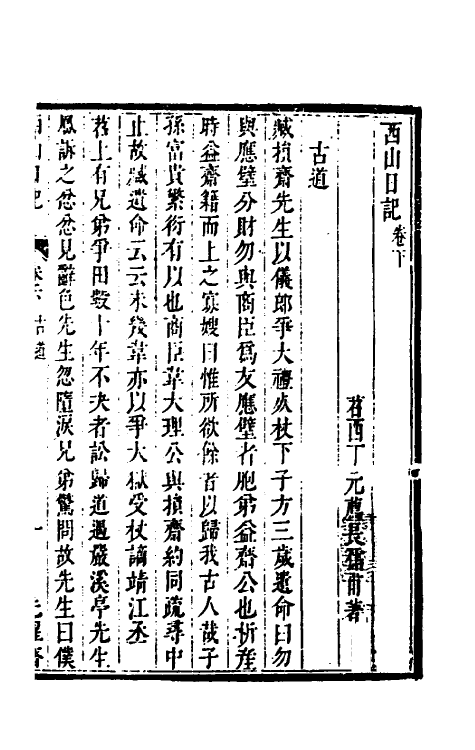 西山日記卷下
苕西丁元薦長孺甫著
古道
臧損齋先生以儀郎爭大禮死杖下子方三歲遺命曰勿
與應璧分財勿與商臣爲友應璧者胞弟益齋公也析產
時益齋籍而上之寡嫂曰惟所欲餘者以歸我古人哉子
孫富貴繁衍有以也商臣韋大理公與損齋約同疏尋中
止故臧遺命云云未幾韋亦以爭大獄受杖謫靖江丞
苕上有兄弟爭田數十年不決者訟歸道過嚴溪亭先生
鳳訴之忿忿見辭色先生忽墮淚兄弟驚問故先生曰僕
西山日記 卷下 古道 一